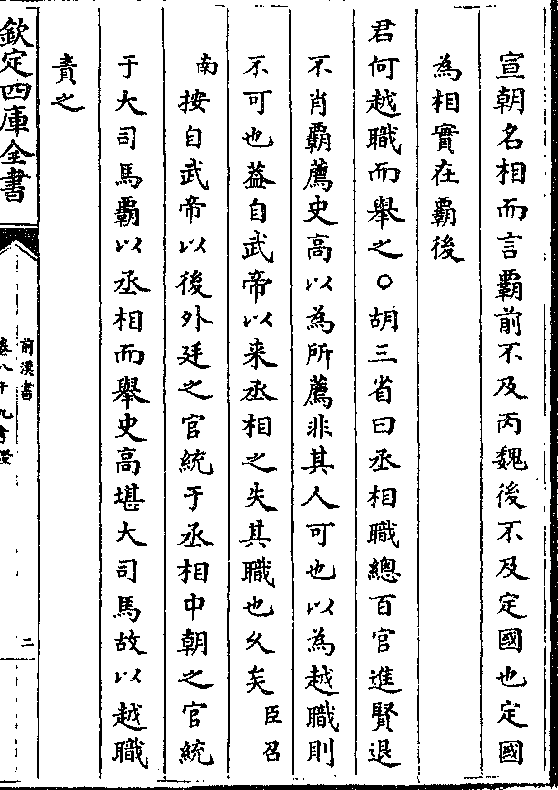 宣朝名相而言霸前不及丙魏後不及定國也定國
為相實在霸後
君何越職而舉之○胡三省曰丞相職總百官進賢退
不肖霸薦史高以為所薦非其人可也以為越職則
不可也葢自武帝以来丞相之失其職也久矣臣召
南按自武帝以後外廷之官統于丞相中朝之官統
于大司馬霸以丞相而舉史高堪大司馬故以越職
責之
欽定四庫全書
前漢書
卷八十九考證
二